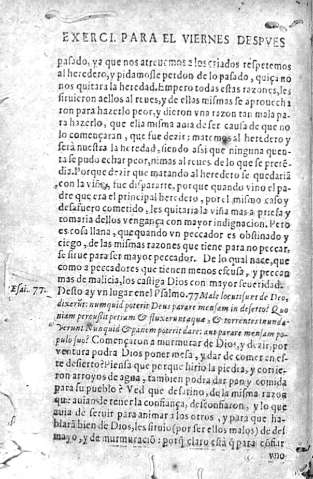 EXERCI. PARA EL VIERNES DESPVES
pasado, ya que nos atreuemos a los criados respetemos
al heredero, y pidamosle perdon de lo pasado, quiça no
nos quitara la heredad. Empero todas estas razones, les
siruieron aellos al reues, y de ellas mismas se aprouecha
ron para hazerlo peor, y dieron vna razon tan mala pa-
ra hazerlo, que ella misma auia de ser causa de que no
lo començaran, que fue dezir: matemos al heredero y
serà nuestra la heredad, siendo assi que ninguna quen-
ta se pudo echar peor, ni mas al reues de lo que se pretẽ-
dia. Porque dezir que matando al heredero se quedariã
con la viña, fue disparate, porque quando vino el pa-
dre que era el principal heredero, por el mismo caso y
desafuero cometido, les quitaria la viña mas a priesa y
tomaria dellos vengança con mayor indignacion. Pero
es cosa llana, que quando vn peccador es obstinado y
ciego, de las mismas razones que tiene para no peccar,
se sirue para ser mayor peccador. De lo qual nace, que
como a peccadores que tienen menos escusa, y peccan
mas de malicia, los castiga Dios con mayor seueridad.
Esai. 77.
Desto ay vn lugar en el Psalmo. 77 Male locuti sunt de Deo,
dixerũt: nunquid poterit Deus parare mensam in deserto? Quo
niam percussit petram & fluxerunt aquæ, & torrentes inunda-
uerunt Nunquid & panem poterit dare: aut parare mensam po-
pulo suo? Començaron a murmurar de Dios, y dezir, por
ventura podra Dios poner mesa, y dar de comer en es-
te desierto? Piensa que porque hirio la piedra, y corrie-
ron arroyos de agua, tambien podra dar pan y comida
para su pueblo? Ved que desatino, de la misma razon
que auian de tener la confiança, desconfiaron, y lo que
auia de seruir para animar a los otros, y para que ha-
blarã bien de Dios, les siruio (por ser ellos malos) de des
mayo, y de murmuraciõ: porq̃ claro està q̃ para cõfiar
vno